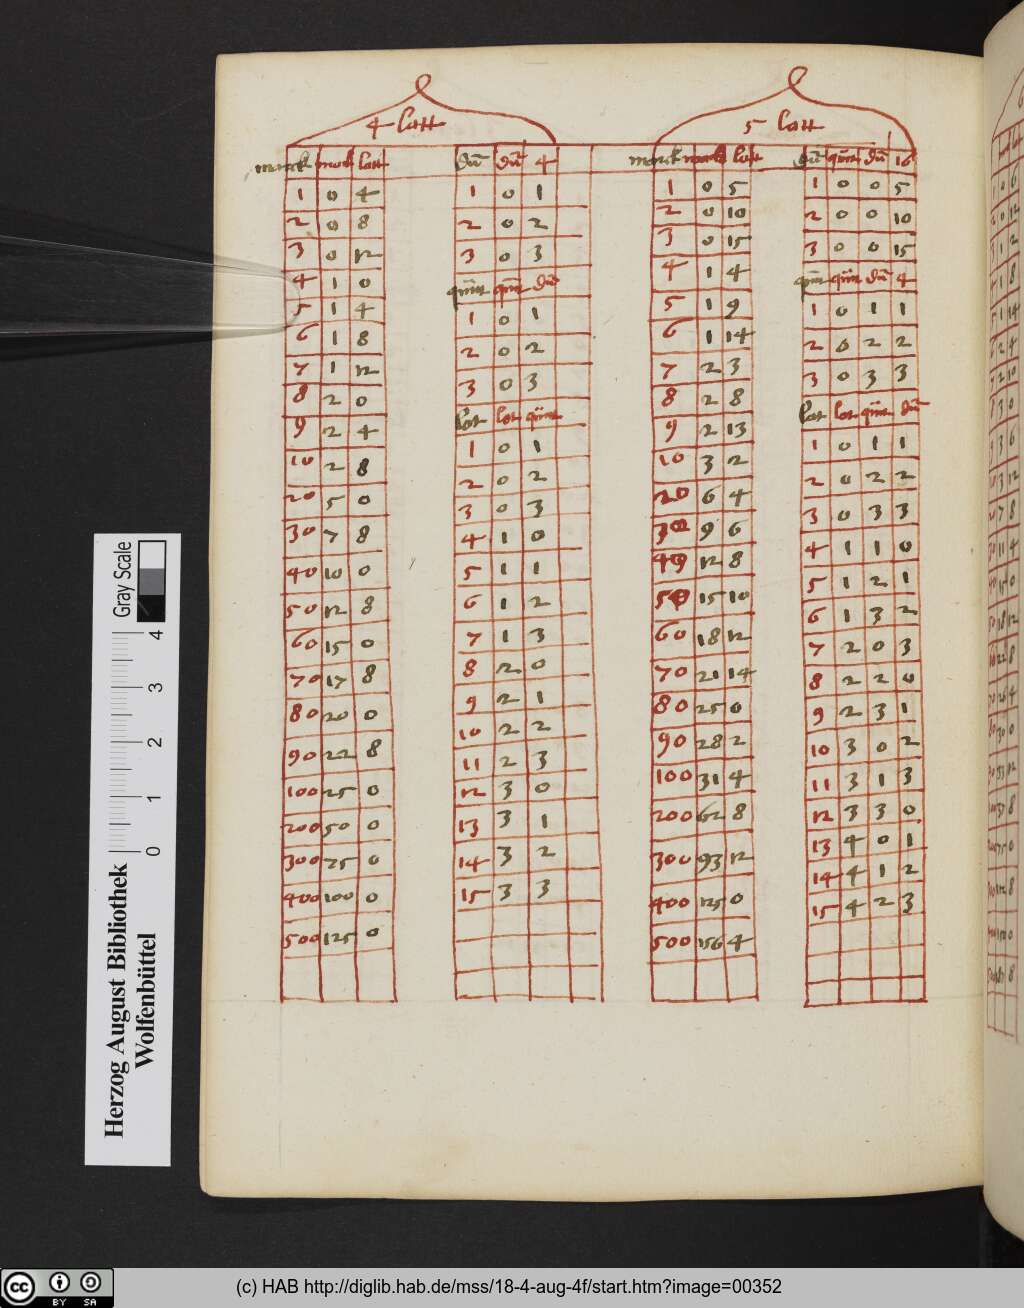 4 Lott
marck mark Lott
1 0 4
2 0 8
3 0 12
4 1 0
5 1 4
6 1 8
7 1 12
8 2 0
9 2 4
10 2 8
20 5 0
30 7 8
40 10 0
50 12 8
60 15 0
70 17 8
80 20 0
90 22 8
100 25 0
200 50 0
300 75 0
400 100 0
500 125 0
dn̄ dn̄ 4
1 0 1
2 0 2
3 0 3
quint quint dn̄
1 0 1
2 0 2
3 0 3
Lot lot quint
1 0 1
2 0 2
3 0 3
4 1 0
5 1 1
6 1 2
7 1 3
8 2 0
9 2 1
10 2 2
11 2 3
12 3 0
13 3 1
14 3 2
15 3 3
5 Lott
marck mark lott
1 0 5
2 0 10
3 0 15
4 1 4
5 1 9
6 1 14
7 2 3
8 2 8
9 2 13
10 3 2
20 6 4
30 9 6
40 12 8
50 15 10
60 18 12
70 21 14
80 25 0
90 28 2
100 31 4
200 62 8
300 93 12
400 125 0
500 156 4
dn̄ quint dn̄ 16
1 0 0 5
2 0 0 10
3 0 0 15
quint quint dn̄ 4
1 0 1 1
2 0 2 2
3 0 3 3
Lot lot quint dn̄
1 0 1 1
2 0 2 2
3 0 3 3
4 1 1 0
5 1 2 1
6 1 3 2
7 2 0 3
8 2 2 0
9 2 3 1
10 3 0 2
11 3 1 3
12 3 3 0
13 4 0 1
14 4 1 2
15 4 2 3
Gray Scale
0 1 2 3 4
Herzog August Bibliothek
Wolfenbüttel
cc BY SA
(c) HAB http://diglib.hab.de/mss/18-4-aug-4f/start.htm?image=00352